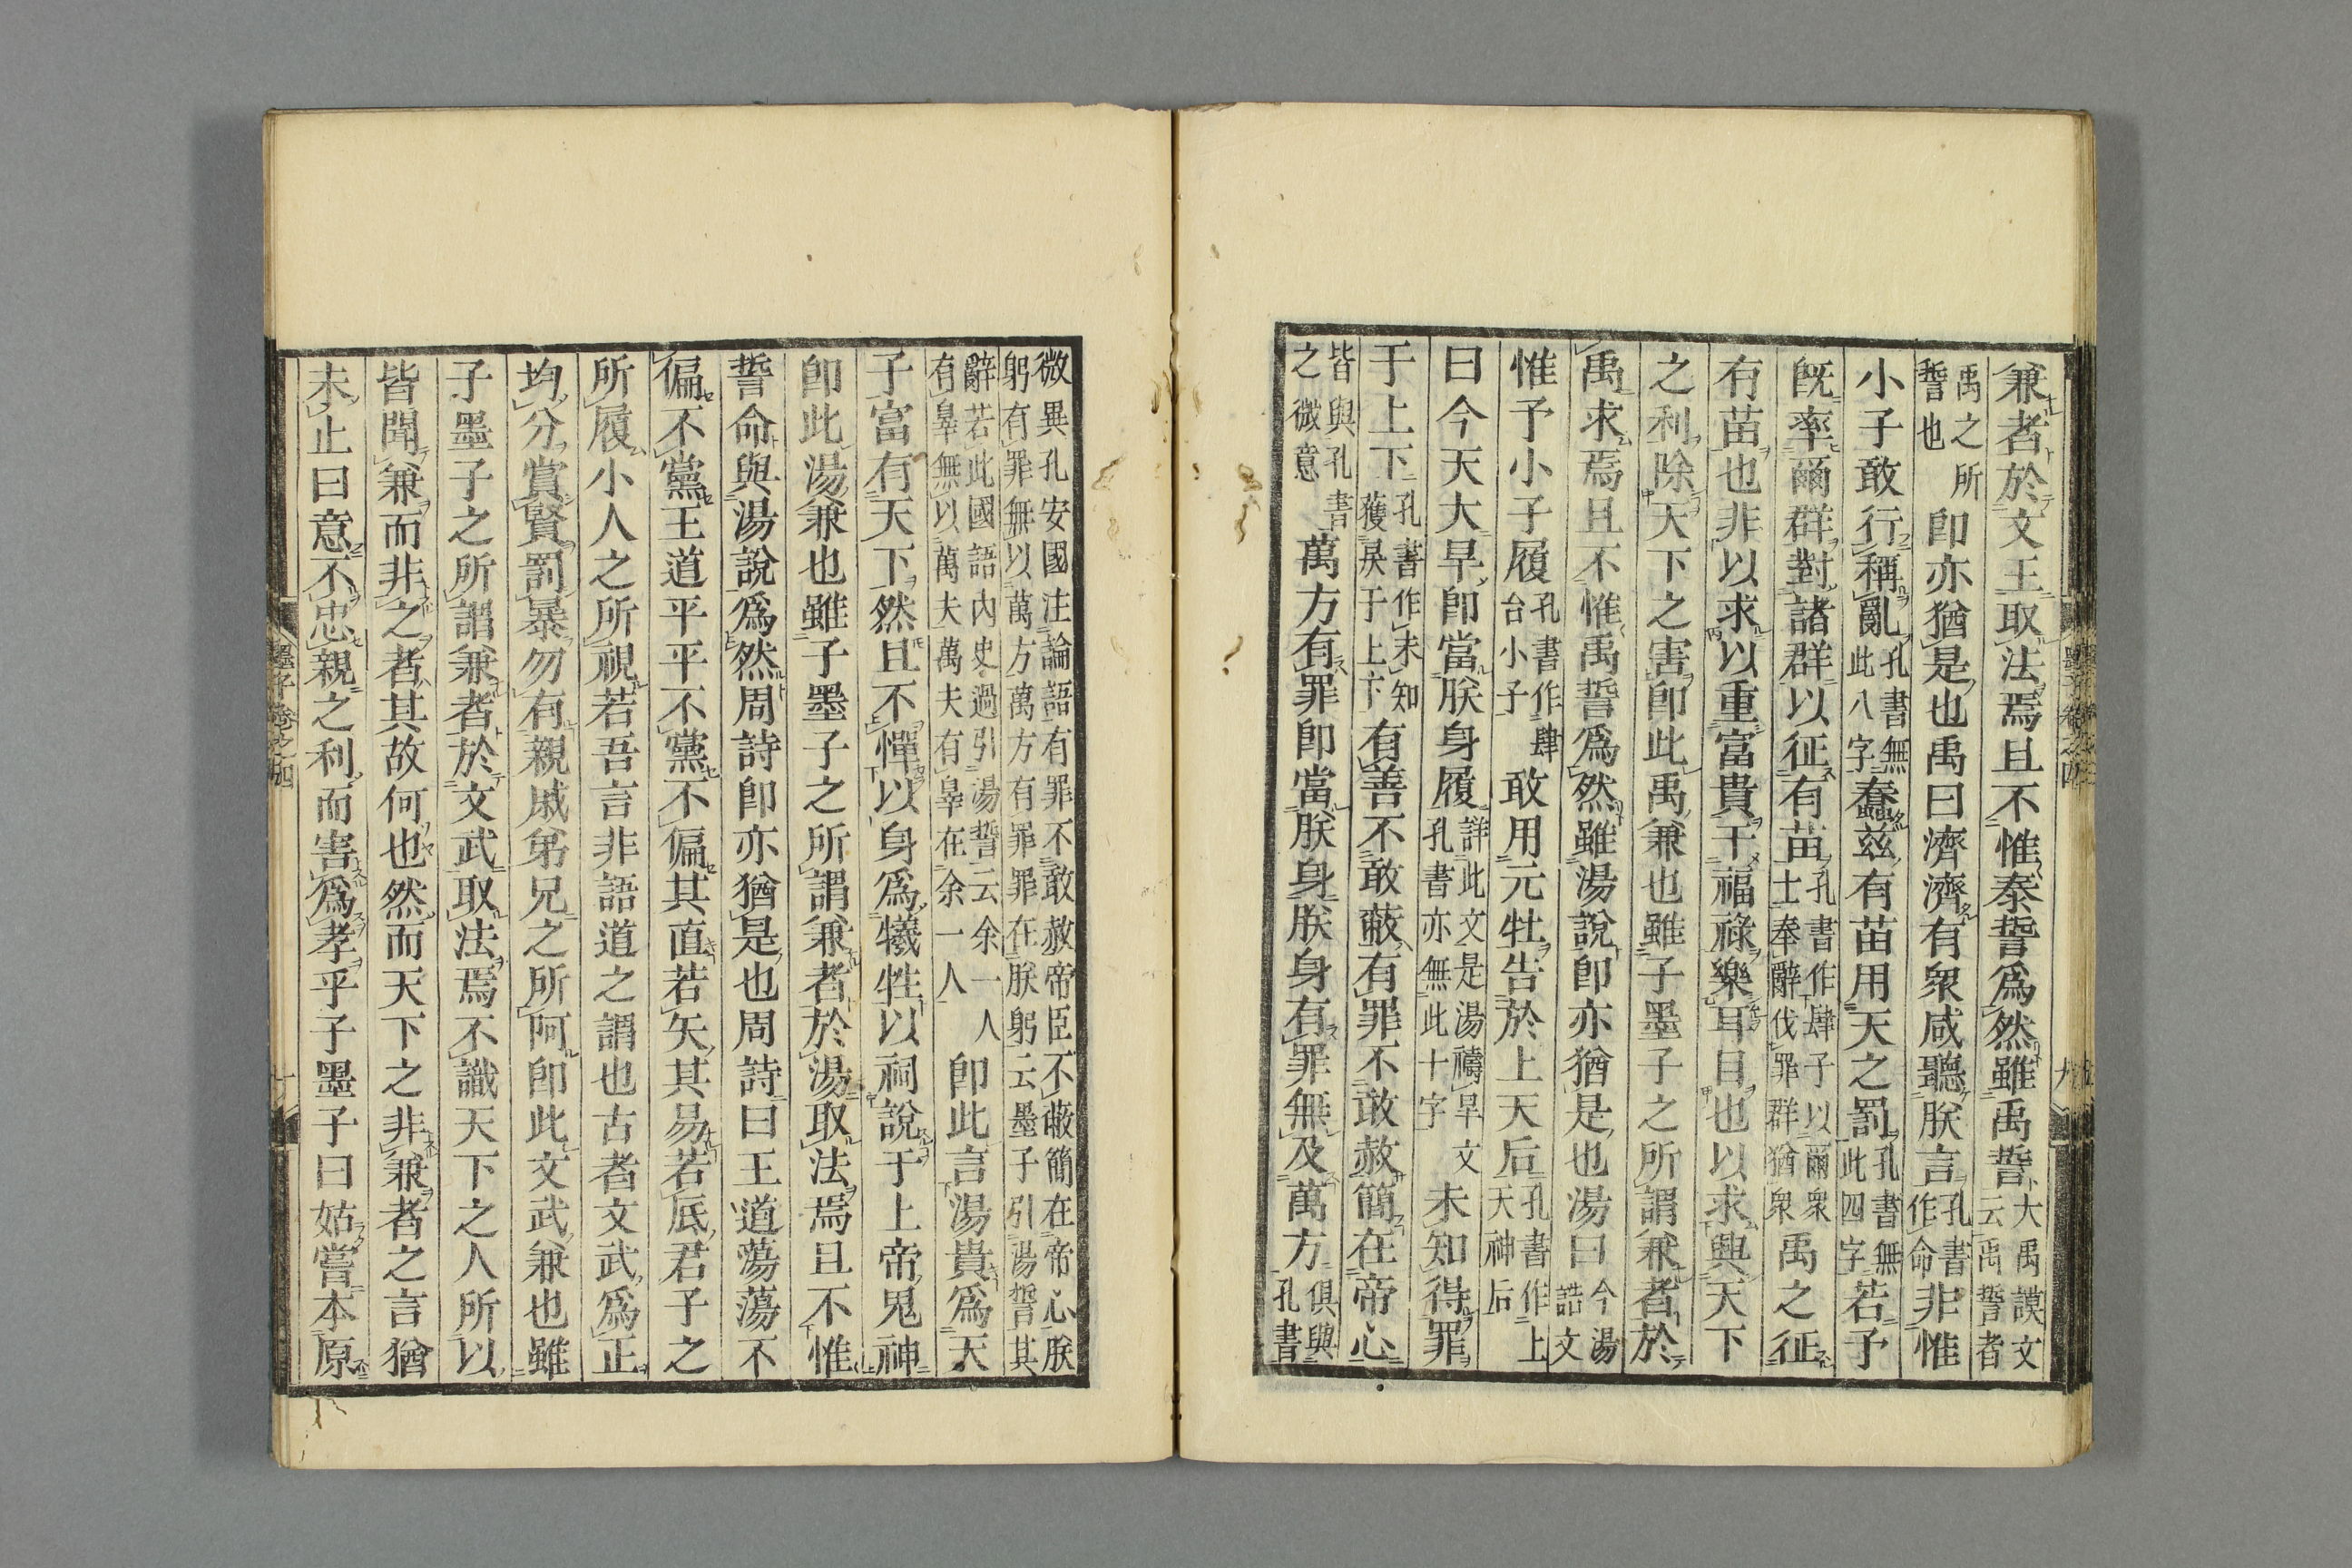 兼者於文王取法焉且不惟泰誓爲然雖禹誓大禹謨文云禹誓者
禹之所誓也卽亦猶是也禹曰濟濟有衆咸聽朕言孔書作命非惟
小子敢行稱亂孔書無此八字蠢茲有苗用天之罰孔書無此四字若予
旣率爾群對諸群以征有苗孔書作肆予以爾衆士奉辭伐罪群猶衆禹之征
有苗也非以求以重富貴干福祿樂耳目也以求興天下
之利除天下之害卽此禹兼也雖子墨子之所謂兼者於
禹求焉且不惟禹誓爲然雖湯說卽亦猶是也湯曰今湯誥文
惟予小子履孔書作肆台小子敢用元牡告於上天后孔書作上天神后
曰今天大旱卽當朕身履詳此文是湯禱旱文孔書亦無此十字未知得罪
于上下孔書作未知獲戾于上下有善不敢蔽有罪不敢赦簡在帝心
皆與孔書之微意萬方有罪卽當朕身朕身有罪無及萬方俱與孔書
微異孔安國注論語有罪不敢赦帝臣不蔽簡在帝心朕躬有罪無以萬方萬方有罪罪在朕躬云墨子引湯誓其
辭若此國語內史過引湯誓云余一人有辠無以萬夫萬夫有辠在余一人卽此言湯貴爲天
子富有天下然且不憚以身爲犧牲以祠說于上帝鬼神
卽此湯兼也雖子墨子之所謂兼者於湯取法焉且不惟
誓命與湯說爲然周詩卽亦猶是也周詩曰王道蕩蕩不
偏不黨王道平平不黨不偏其直若矢其易若底君子之
所履小人之所視若吾言非語道之謂也古者文武爲正
均分賞賢罰暴勿有親戚弟兄之所阿卽此文武兼也雖
子墨子之所謂兼者於文武取法焉不識天下之人所以
皆聞兼而非之者其故何也然而天下之非兼者之言猶
未止曰意不忠親之利而害爲孝乎子墨子曰姑嘗本原
墨子卷之四